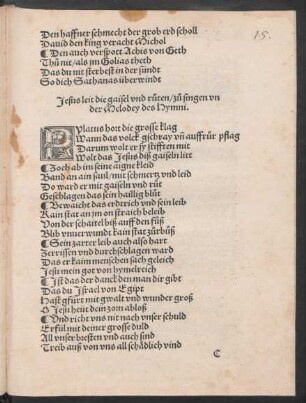 15.
Den haffner schmecht der grob erd scholl
Dauid den king veracht Michol
¶ Den auch verspott Achis von Geth
Thů nit / als im Golias theth
Das du nit sterbest in der sündt
So dich Sathanas überwindt
Jesus leit die gaisel vnd růten / zů singen vn
der Melodey des Hymni.
Pylatus hort die grosse klag
Wann das volck gschray vñ auffrůr pflag
Darum wolt er sy stifften mit
Wolt das Jesus diß gaiseln litt
¶ Zoch ab im seine aigne klaid
Band an ain saul / mit schmertz vnd leid
Do ward er mit gaiseln vnd růt
Geschlagen das sein haillig blůt
¶ Bewaicht das erdtrich vnd sein leib
Kain stat an jm on straich beleib
Von der schaitel biß auff den fůß
Blib vnuerwundt kain stat zůrbůß
¶ Sein zarter leib auch also hart
Zerrissen vnd durchschlagen ward
Das er kaim menschen sach geleich
Jesu mein got von hymelreich
¶ Ist das der danck den man dir gibt
Das du Israel von Egipt
Hast gfürt mit gwalt vnd wunder groß
O Jesu heut dein zorn abloß
¶ Vnd richt vns nit nach vnser schuld
Erfül mit deiner grosse duld
All vnser biesten vnd auch sind
Treib auß von vns all schädlich wind
C